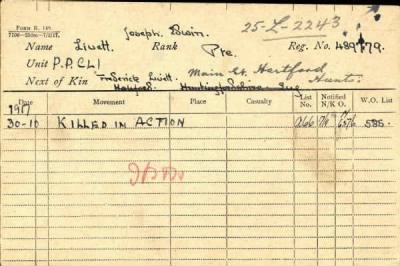 FORM R. 149.
25-L-2243
Name Livett. Joseph Brain. Rank Pte. Reg. No. 489779.
Unit P.P.CLI
Next of Kin Frederick Livett. Main St. Hartford Hunts.
Hartford. Huntingdonshire Eng
Date Movement Place Casualty List No. Notified N/K O. W.O. List
1917
30-10 KILLED IN ACTION 585.